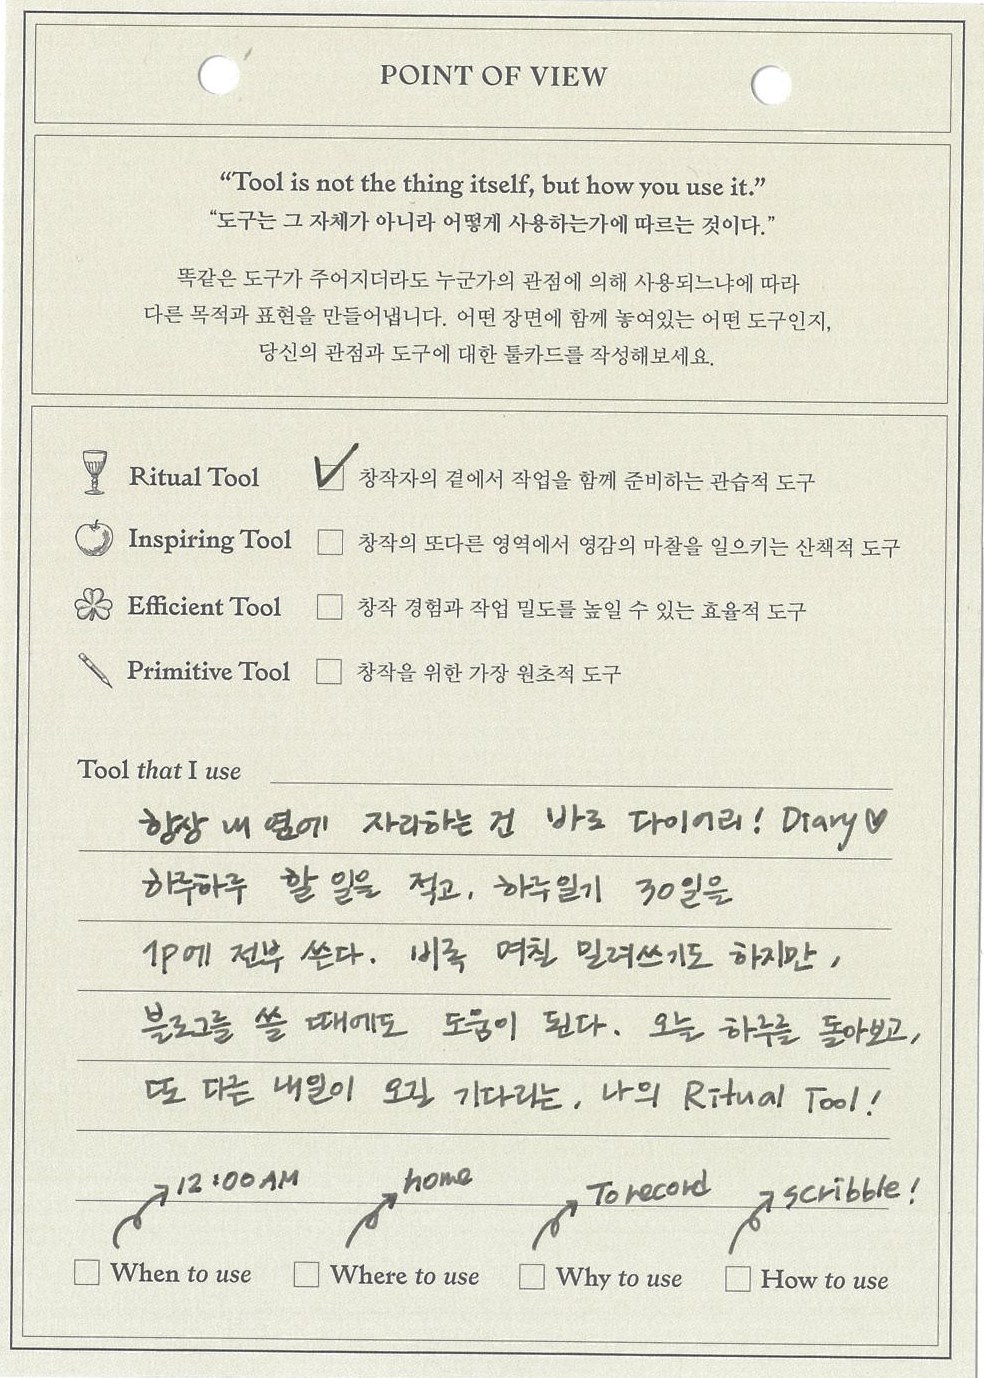 POINT OF VIEW
“Tool is not the thing itself, but how you use it.”
“도구는 그 자체가 아니라 어떻게 사용하는가에 따르는 것이다.”
똑같은 도구가 주어지더라도 누군가의 관점에 의해 사용되느냐에 따라
다른 목적과 표현을 만들어냅니다. 어떤 장면에 함께 놓여있는 어떤 도구인지,
당신의 관점과 도구에 대한 툴카드를 작성해보세요.
Ritual Tool 창작자의 곁에서 작업을 함께 준비하는 관습적 도구
Inspiring Tool 창작의 또다른 영역에서 영감의 마찰을 일으키는 산책적 도구
Efficient Tool 창작 경험과 작업 밀도를 높일 수 있는 효율적 도구
Primitive Tool 창작을 위한 가장 원초적 도구
Tool that I use
항상 내 옆에 자리하는 건 바로 다이어리! Diary♡
하루하루 할 일을 적고, 하루일기 30일을
1p에 전부 쓴다. 비록 며칠 밀려쓰기도 하지만,
블로그를 쓸 때에도 도움이 된다. 오늘 하루를 돌아보고,
또 다른 내일이 오길 기다리는, 나의 Ritual Tool!
12:00AM home To record scribble!
When to use Where to use Why to use How to use